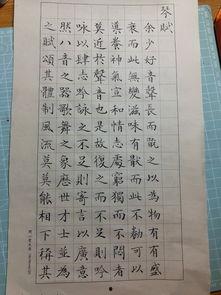 琴賦
余少好音聲長而翫之以為物有盛
衰而此無變滋味有猒而此不勌可以
導養神氣宣和情志處窮獨而不悶者
莫近於聲音也是故復之而不足則吟
詠以肆志吟詠之不足則寄言以廣意
然八音之器歌舞之象歷世才士並為
之賦頌其體制風流莫相稱其